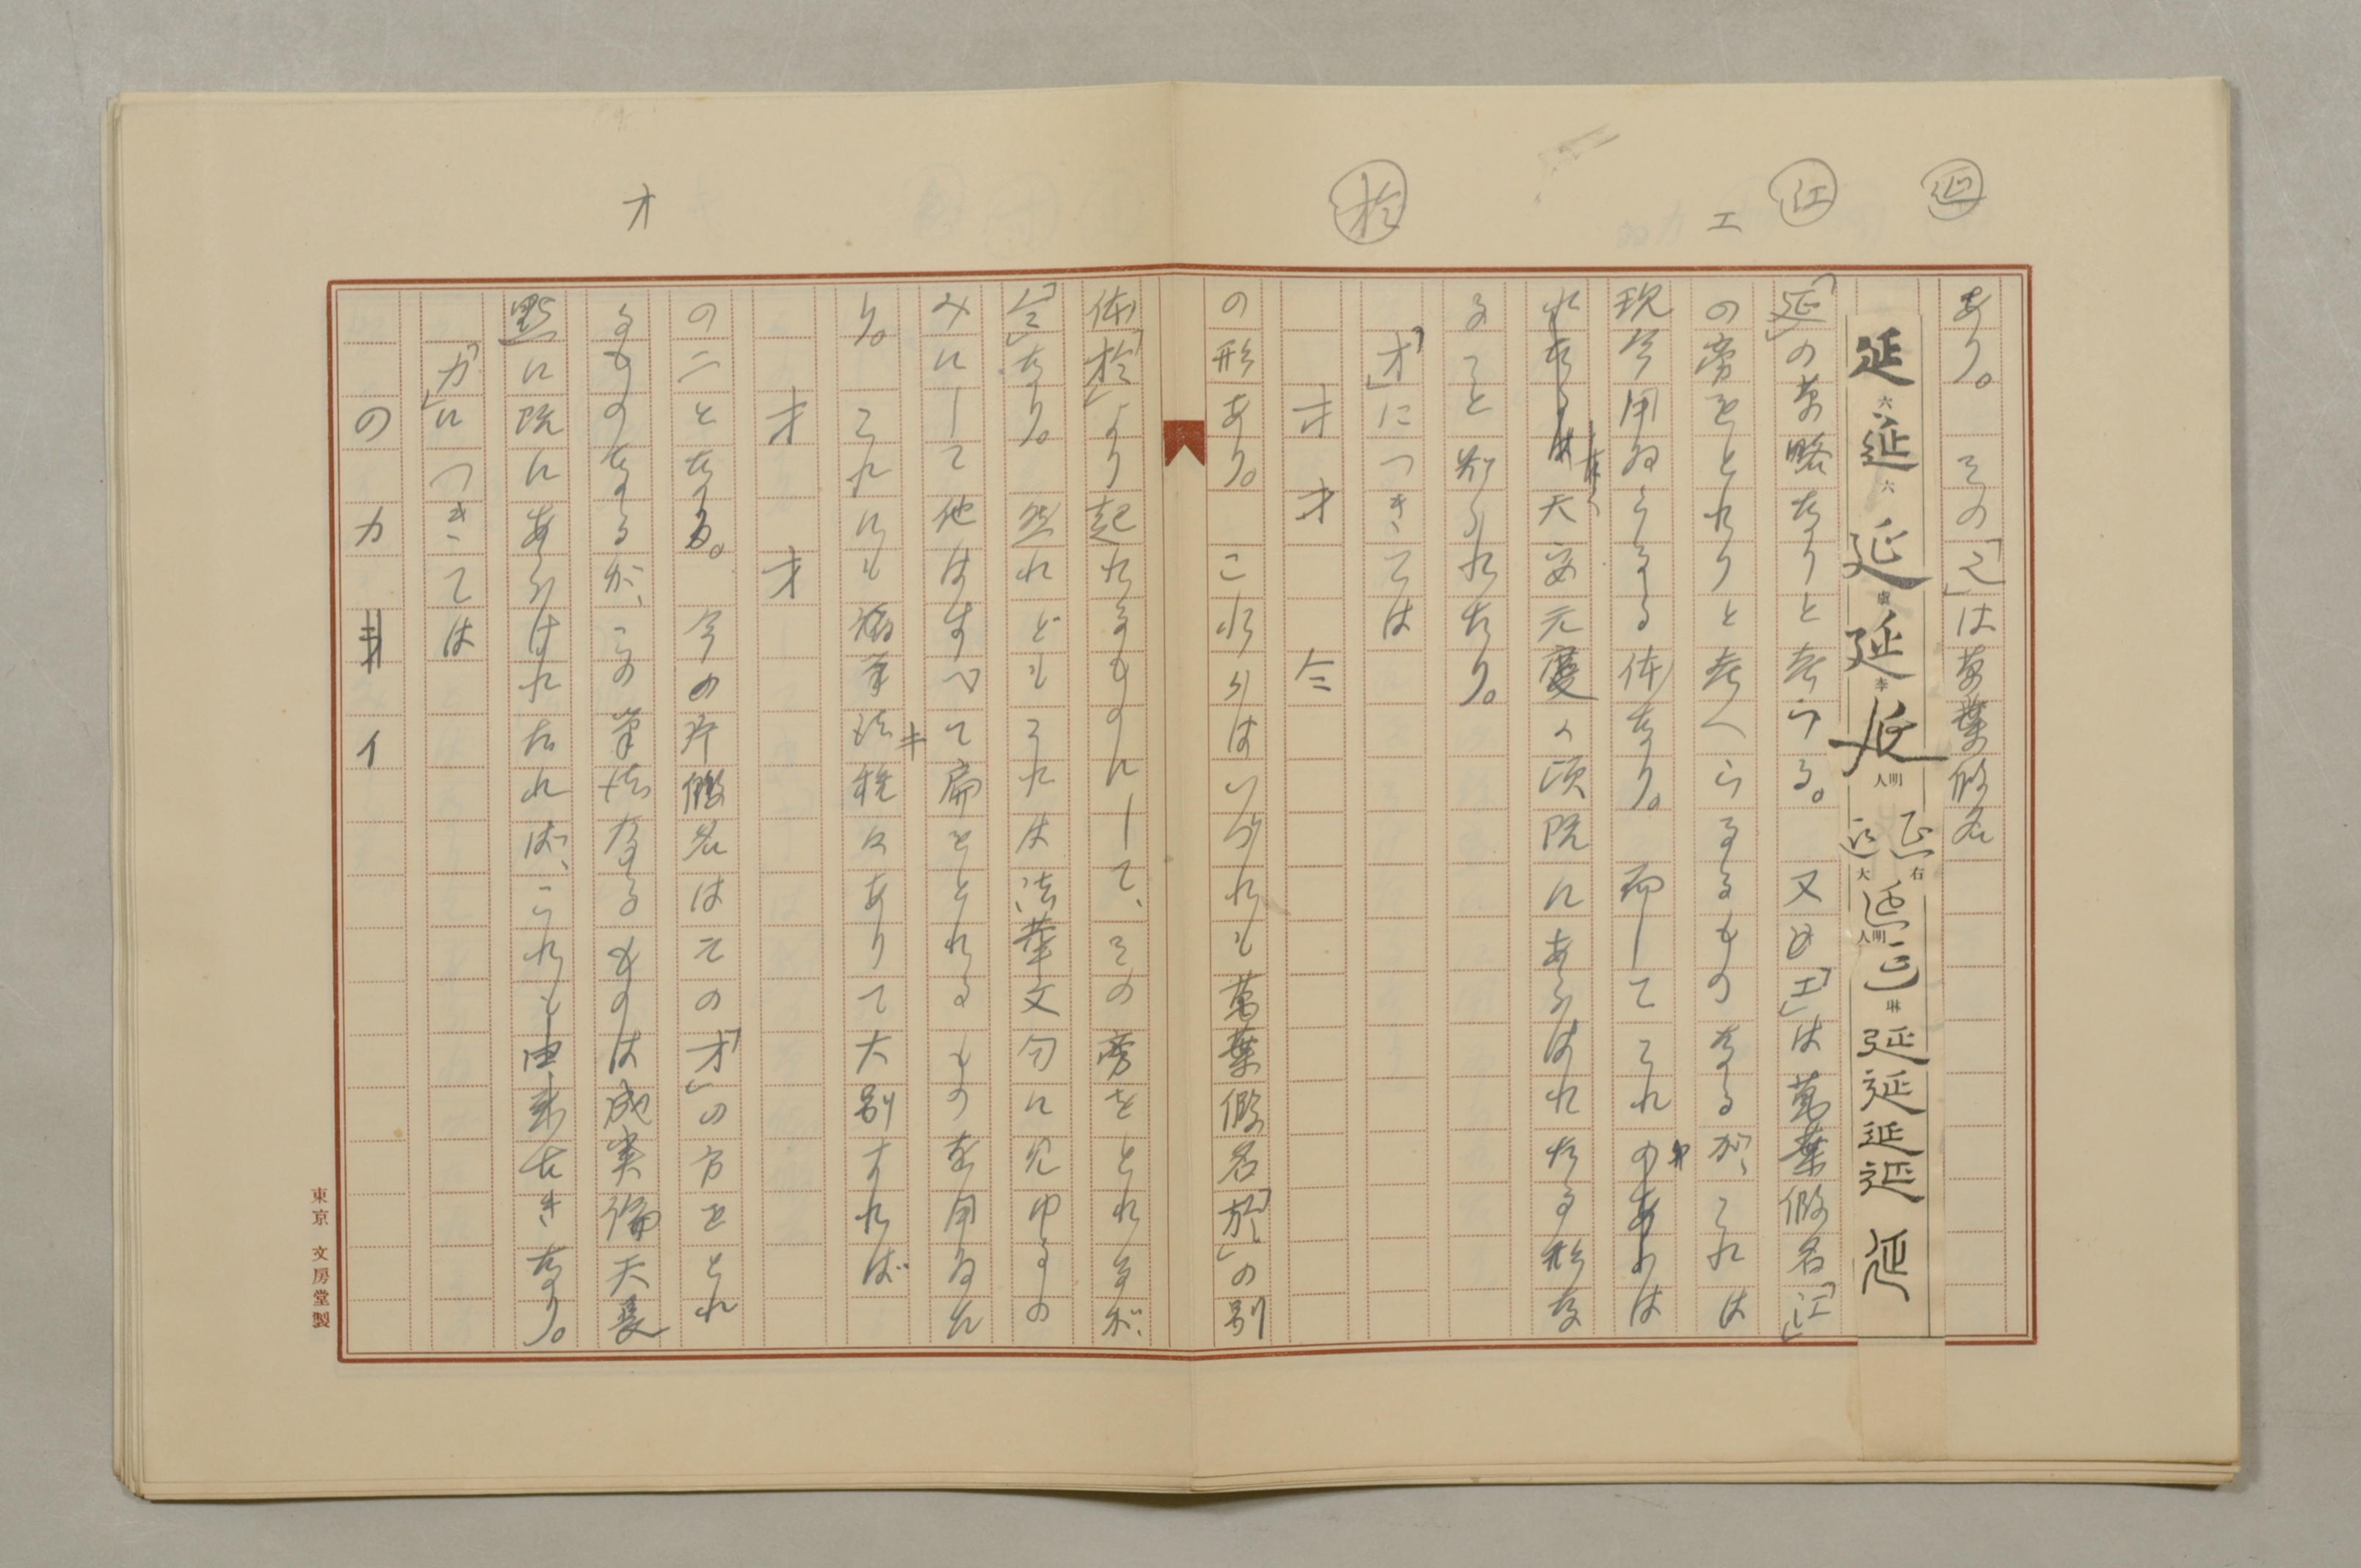 延
江
エ
於
オ
あり。その「之」は万葉仮名
延 六 延 六 延 虞 延 李 延 明人 延 右 延 大 延 明人 延 琳 延 延 延 延 延
「延」の草略なりと考らる。又「エ」は萬葉假名「江」
の旁をとれりと考へらるるものなるが、これは
現今用ゐらるる体なり。而してこれのあるは
天安元慶の頃既にあらはれたる形な
ること知られたり。
「オ」につきては
オ オ 仒
の形あり。これらはいづれも萬葉假名「於」の別
体「扵」より起れるものにして、その旁をとれるが
「仒」なり。然れどもこれは法華文句に見ゆるの
みにして他はすべて扁をとれるものを用ゐた
り。これにも筆法種々ありて大別すれば
オ 才
の二となる。今の片假名はその「オ」の方をとれ
るものなるが、この筆法なるものは成実論天長
點に既にあらはれたれば、これも由来古きなり。
「カ」につきては
の カ イ
東京 文房堂製